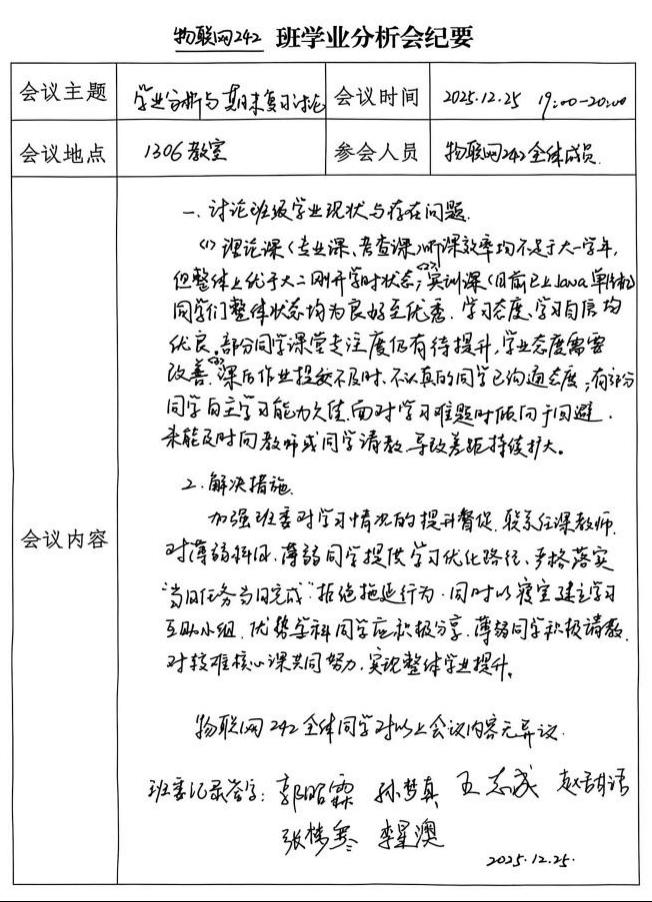 物联网242 班学业分析会纪要
会议主题 学业分析与期末复习讨论 会议时间 2025.12.25 19:00-20:00
会议地点 1306教室 参会人员 物联网242全体成员.
会议内容
一.讨论班级学业现状与存在问题.
(1)理论课(专业课、考查课)听课效率均不足于大一学年,
但整体上优于大二刚开学时状态;(2)实训课(目前已上Java、单片机)
同学们整体状态均为良好至优秀.学习态度、学习自信均
优良.部分同学课堂专注度仍有待提升,学业态度需要
改善.(3)课后作业提交不及时、不认真的同学已沟通态度;有部分
同学自主学习能力欠佳,面对学习难题时倾向于回避.
未能及时向教师或同学请教,导致差距持续扩大。
2.解决措施.
加强班委对学习情况的提升督促,联系任课教师.
对薄弱科目、薄弱同学提供学习优化路径、严格落实
“当日任务当日完成”拒绝拖延行为.同时以寝室建立学习
互助小组.优势学科同学应积极分享,薄弱同学积极请教.
对较难核心课共同努力,实现整体学业提升。
物联网242全体同学对以上会议内容无异议.
班委记录签字: 孙梦真 王志成
2025.12.25.